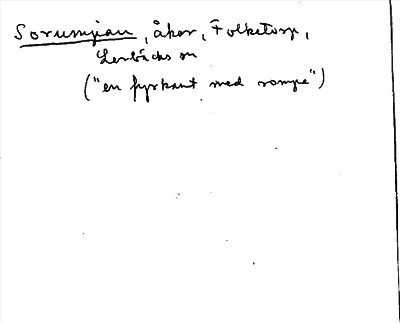 Sorumpan, åker, Folketorp,
Lerbäcks sn
("en fyrkant med rompe")